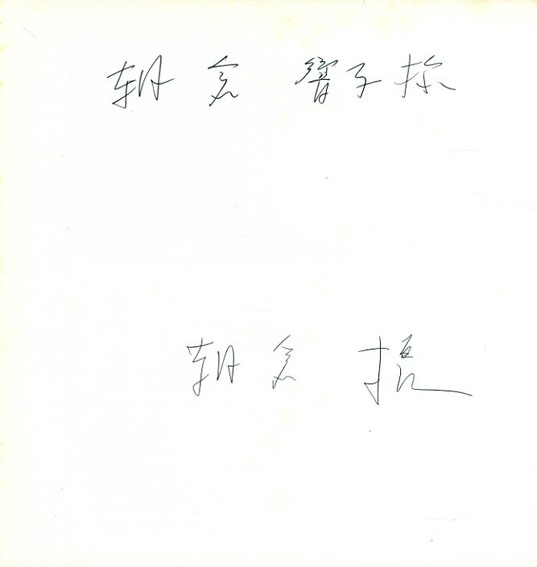 朝倉 響子様
朝倉 摂